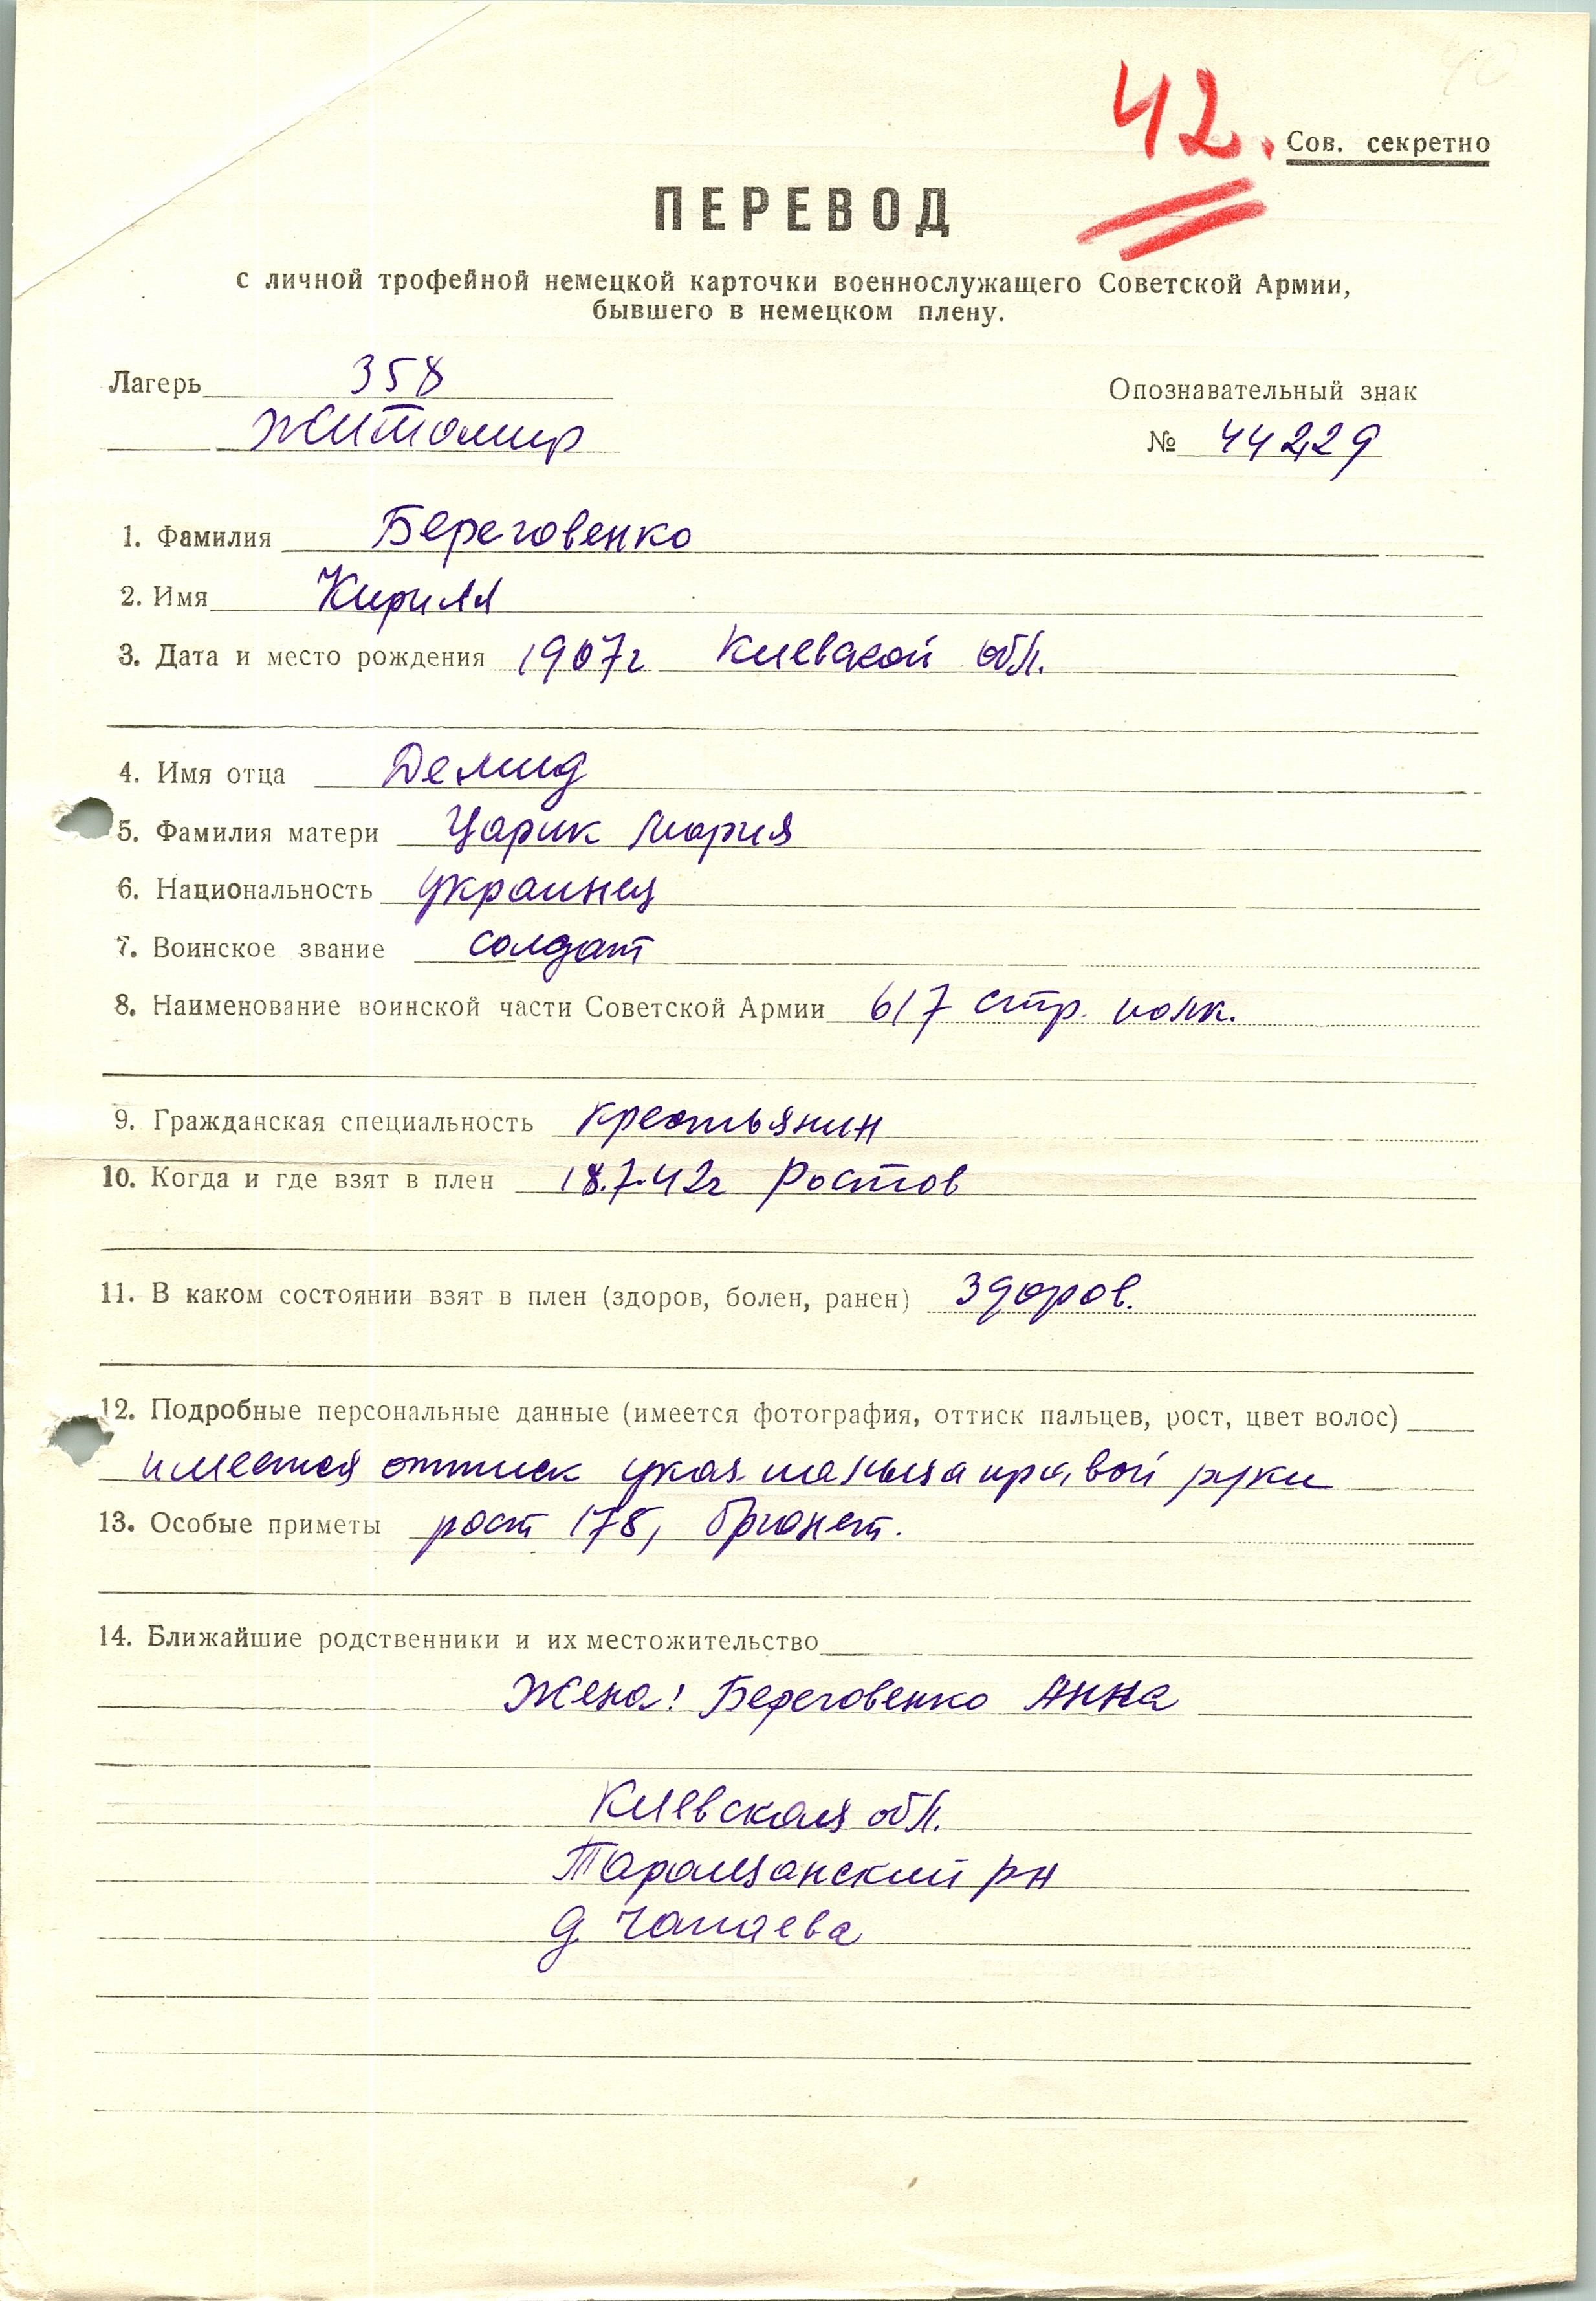 42.
Сов. секретно
ПЕРЕВОД
с личной трофейной немецкой карточки военнослужащего Советской Армии,
бывшего в немецком плену.
Лагерь 358 Опознавательный знак
Житомир № 44229
1. Фамилия Береговенко
2. Имя Кирилл
3. Дата и место рождения 1907г Киевской обл.
4. Имя отца Демид
5. Фамилия матери Царик Мария
6. Национальность украинец
7. Воинское звание солдат
8. Наименование воинской части Советской Армии 617 стр. полк.
9. Гражданская специальность крестьянин
10. Когда и где взят в плен 18.7.42г Ростов
11. В каком состоянии взят в плен (здоров, болен, ранен) здоров.
12. Подробные персональные данные (имеется фотография, оттиск пальцев, рост, цвет волос)
имеется оттиск указ. пальца правой руки
13. Особые приметы рост 178, брюнет.
14. Ближайшие родственники и их местожительство
Жена: Береговенко Анна
Киевская обл.
Таращанский р-н
д. Чапаева